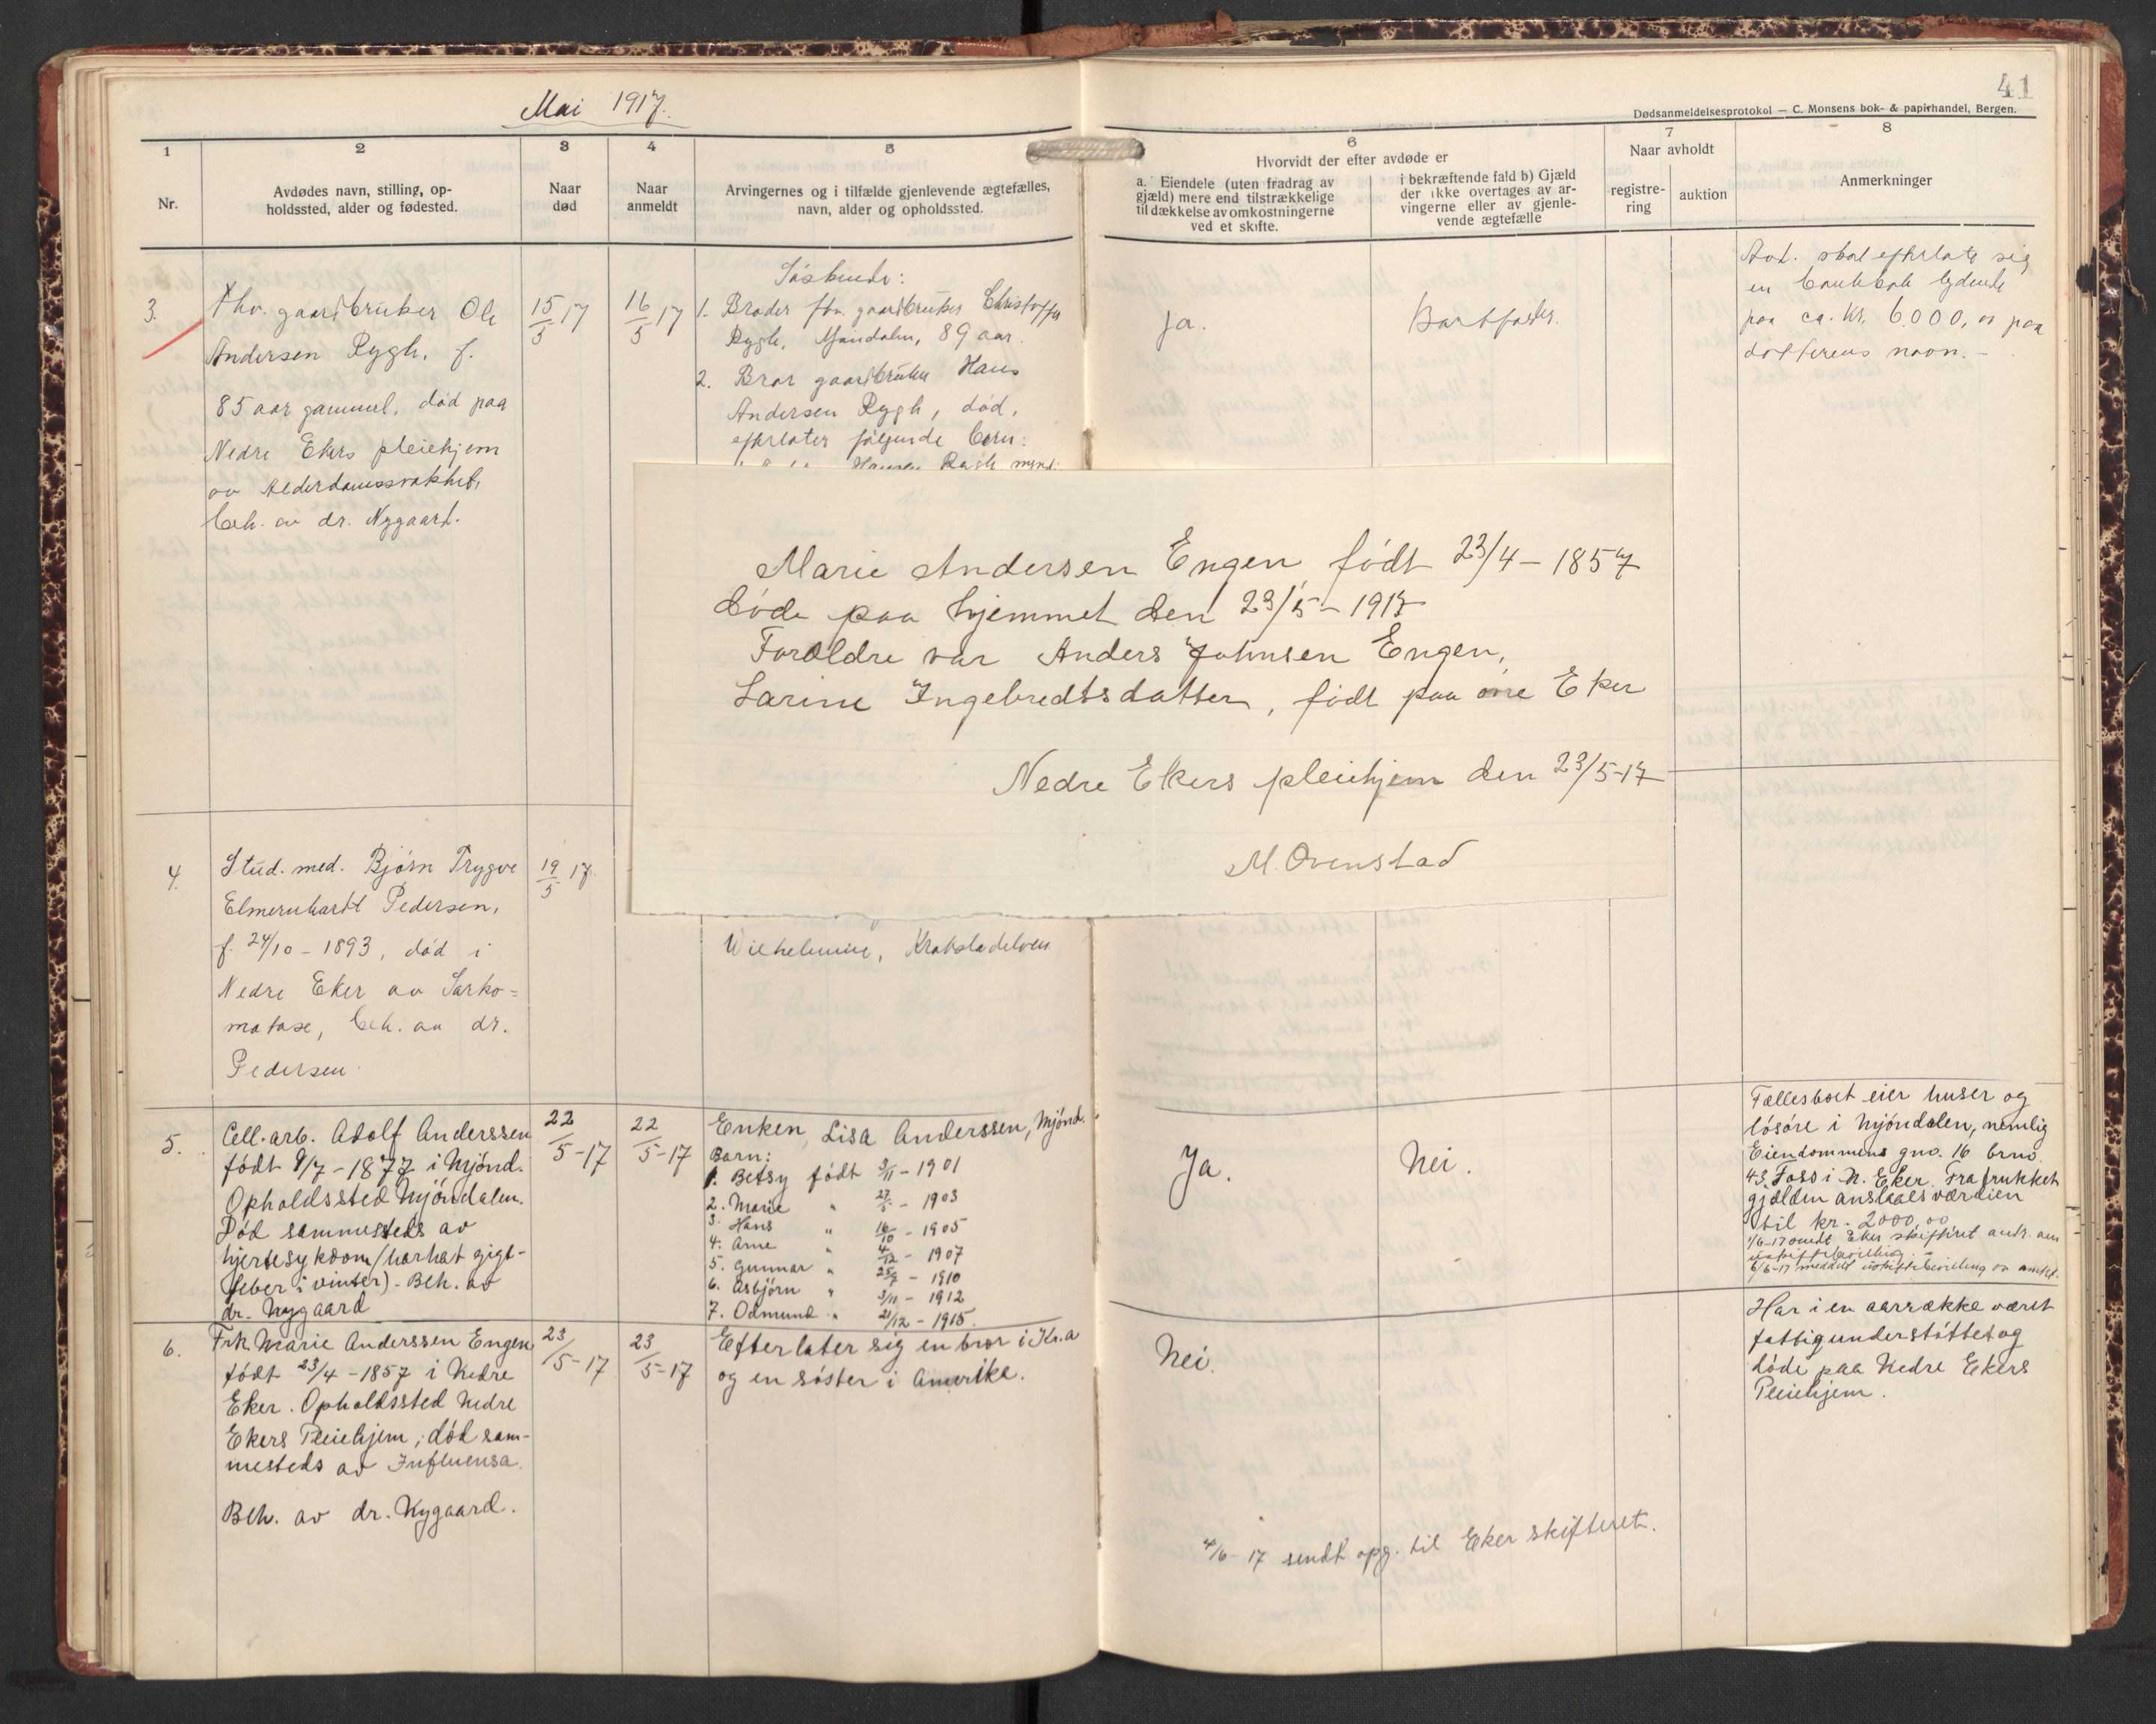 Mai 1917.
41
Dødsanmeldelsesprotokol — C. Monsens bok- & papirhandel, Bergen.
1
Nr.
2
Avdødes navn, stilling, op-
holdssted, alder og fødested.
3
Naar
død
4
Naar
anmeldt
5
Arvingernes og i tilfælde gjenlevende ægtefælles,
navn, alder og opholdssted.
6
Hvorvidt der efter avdøde er
a. Eiendele (uten fradrag av
gjæld) mere end tilstrækkelige
til dækkelse av omkostningerne
ved et skifte.
i bekræftende fald b) Gjæld
der ikke overtages av ar-
vingerne eller av gjenle-
vende ægtefælle
7
Naar avholdt
registre-
ring
auktion
8
Anmerkninger
3.
Fhv. gaardbruker Ole
Andersen Rygh, f.
85 aar gammel, død paa
Nedre Ekers pleiehjem
av Alderdomssvakhet,
beh. av dr. Nygaard.
15/5 17
16/5 17
Søskende:
1. Broder fhv. gaardbruker Christoffer
Rygh, Mjøndalen, 89 aar.
2. Bror gaardbruker Hans
Andersen Rygh, død,
efterlater følgende børn:
Hansen Rygh mynd.
Ja.
Bortfaller.
Avd. skal efterlate sig
en bankbok lydende
paa ca. Kr. 6.000,00 paa
datterens navn. –
Marie Andersen Engen, født 23/4 – 1857
døde paa hjemmet den 23/5 – 1917
Forældre var Anders Johnsen Engen,
Larine Ingebredtsdatter, født paa øvre Eker
Nedre Ekers pleiehjem den 23/5-17
M. Ovenstad
Wilhelmine, Krokstadelven
4.
Stud. med. Bjørn Trygve
Elmernhardt Pedersen,
f. 24/10 – 1893, død i
Nedre Eker av Sarko=
matose, beh. av dr.
Pedersen.
19/5 17.
5.
Cell.arb. Adolf Anderssen
født 9/7 – 1877 i Mjønd.
Opholdssted Mjøndalen.
Død sammesteds av
hjertesykdom (har hat gigt-
feber i vinter) – Beh. av
dr. Nygaard
22/5-17
22/5-17
Enken, Lisa Anderssen, Mjønd.
Barn:
1. Betsy født 3/11 – 1901
2. Marie " 27/5 – 1903
3. Hans " 16/10 – 1905
4. Arne " 4/12 – 1907
5. Gunnar " 25/9 – 1910
6. Asbjørn " 3/11 – 1912
7. Odmund " 21/12 – 1915.
Ja.
Nei.
Fællesboet eier huser og
løsøre i Mjøndalen, nemlig
Eiendommens gno. 16 brno.
43, Foss i N. Eker. Fratrukket
gjælden anslaaes værdien
til kr. 2000,00
1/6-17 sendt Eker skifteret andr. om
uskiftebevilling. –
6/6-17 meddelt uskiftebevilling av amtet.
6.
Frk. Marie Anderssen Engen
født 23/4 – 1857 i Nedre
Eker. Opholdssted Nedre
Ekers Pleiehjem, død sam-
mesteds av Influensa.
Beh. av dr. Nygaard.
23/5-17
23/5-17
Efterlater sig en bror i Kr.a
og en søster i Amerika.
Nei.
Har i en aarrække været
fattigunderstøttet og
døde paa Nedre Ekers
Pleiehjem.
4/6-17 sendt opg. til Eker skifteret.